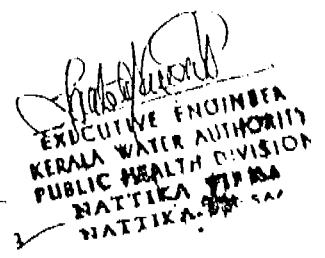 EXECUTIVE ENGINEER
KERALA WATER AUTHORITY
PUBLIC HEALTH DIVISION
NATTIKA
NATTIKA